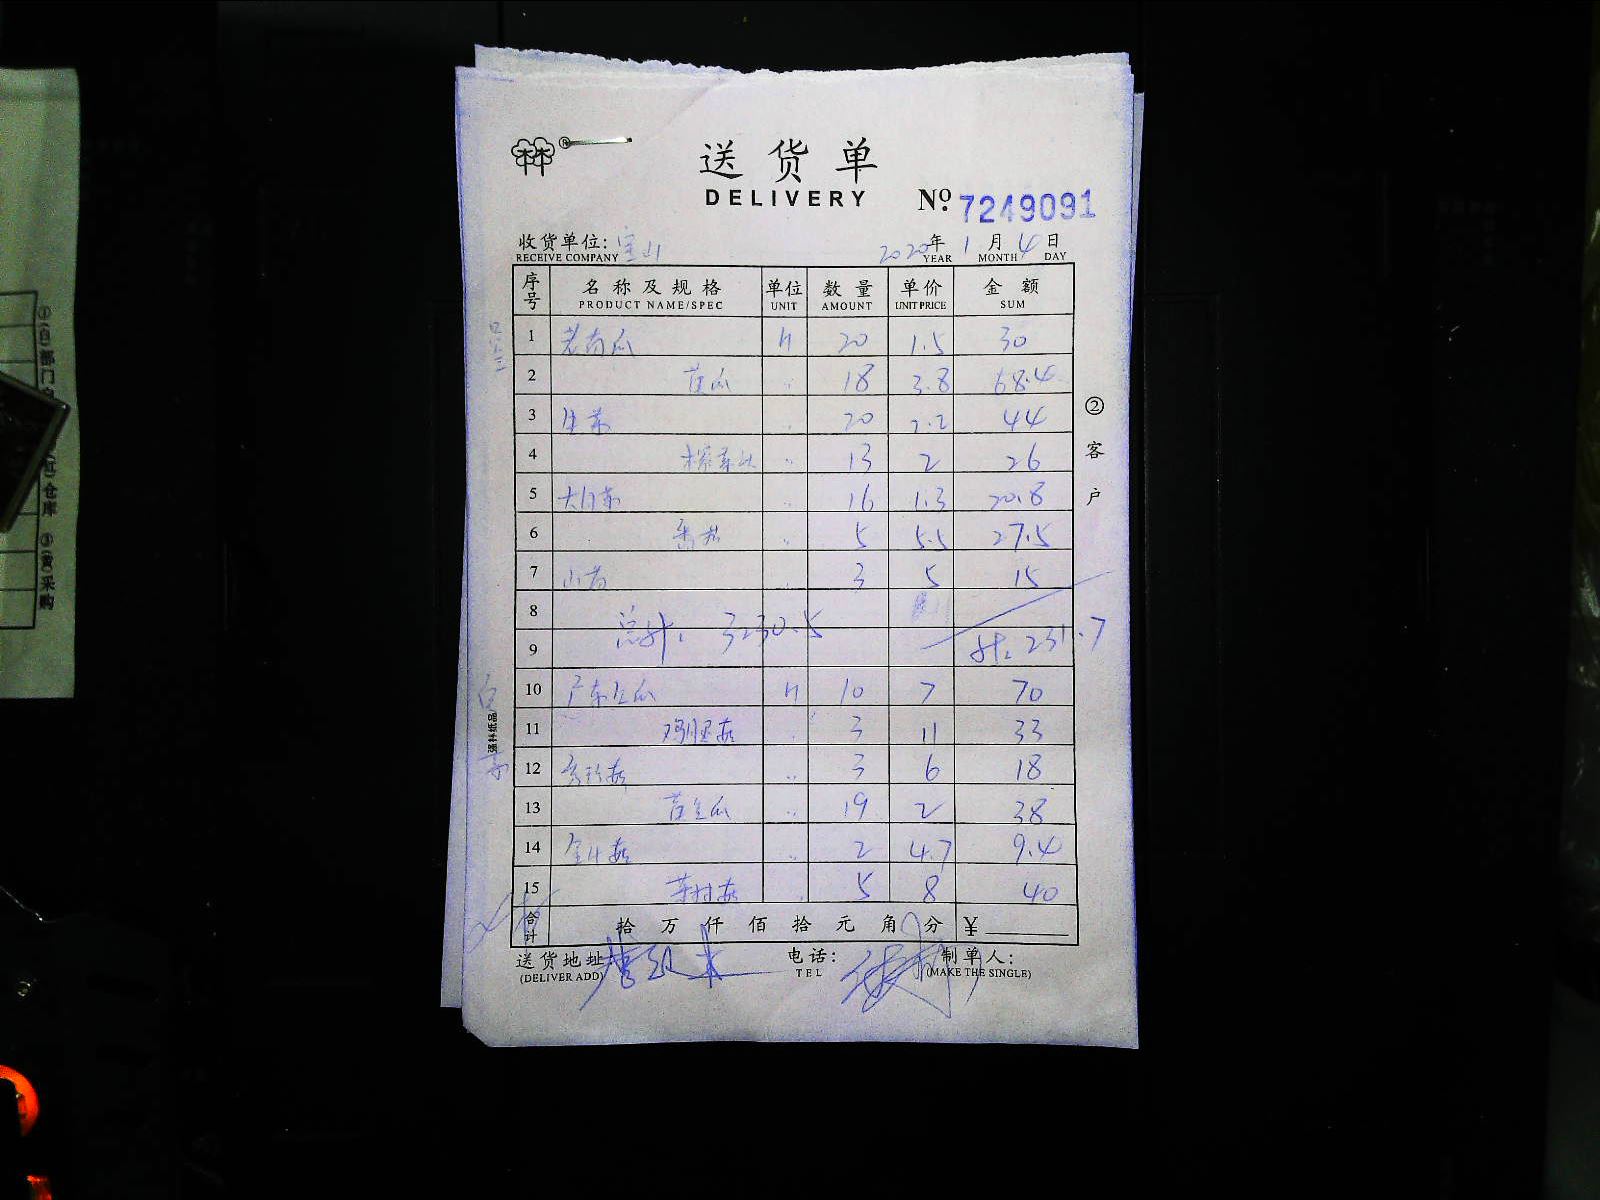 送货单
DELIVERY
№ 7249091
收货单位: 宝山 2020年 1月 4日
RECEIVE COMPANY YEAR MONTH DAY
序号 名称及规格 单位 数量 单价 金额
PRODUCT NAME/SPEC UNIT AMOUNT UNIT PRICE SUM
1 老南瓜 斤 20 1.5 30
2 黄瓜 〃 18 3.8 68.4
3 生菜 20 2.2 44
4 榨菜头 〃 13 2 26
5 大白菜 16 1.3 20.8
6 番茄 〃 5 5.5 27.5
7 山药 3 5 15
8
总计: 3230.5
9 计: 231.7
10 广东丝瓜 斤 10 7 70
11 鸡腿菇 3 11 33
12 秀珍菇 〃 3 6 18
13 黄金瓜 〃 19 2 38
14 金针菇 〃 2 4.7 9.4
15 茶树菇 5 8 40
合计 拾 万 仟 佰 拾 元 角 分 ¥
送货地址 电话: 制单人:
(DELIVER ADD) TEL (MAKE THE SINGLE)
②客户
强林纸品
①(白)部门
仓库 ③(黄)采购